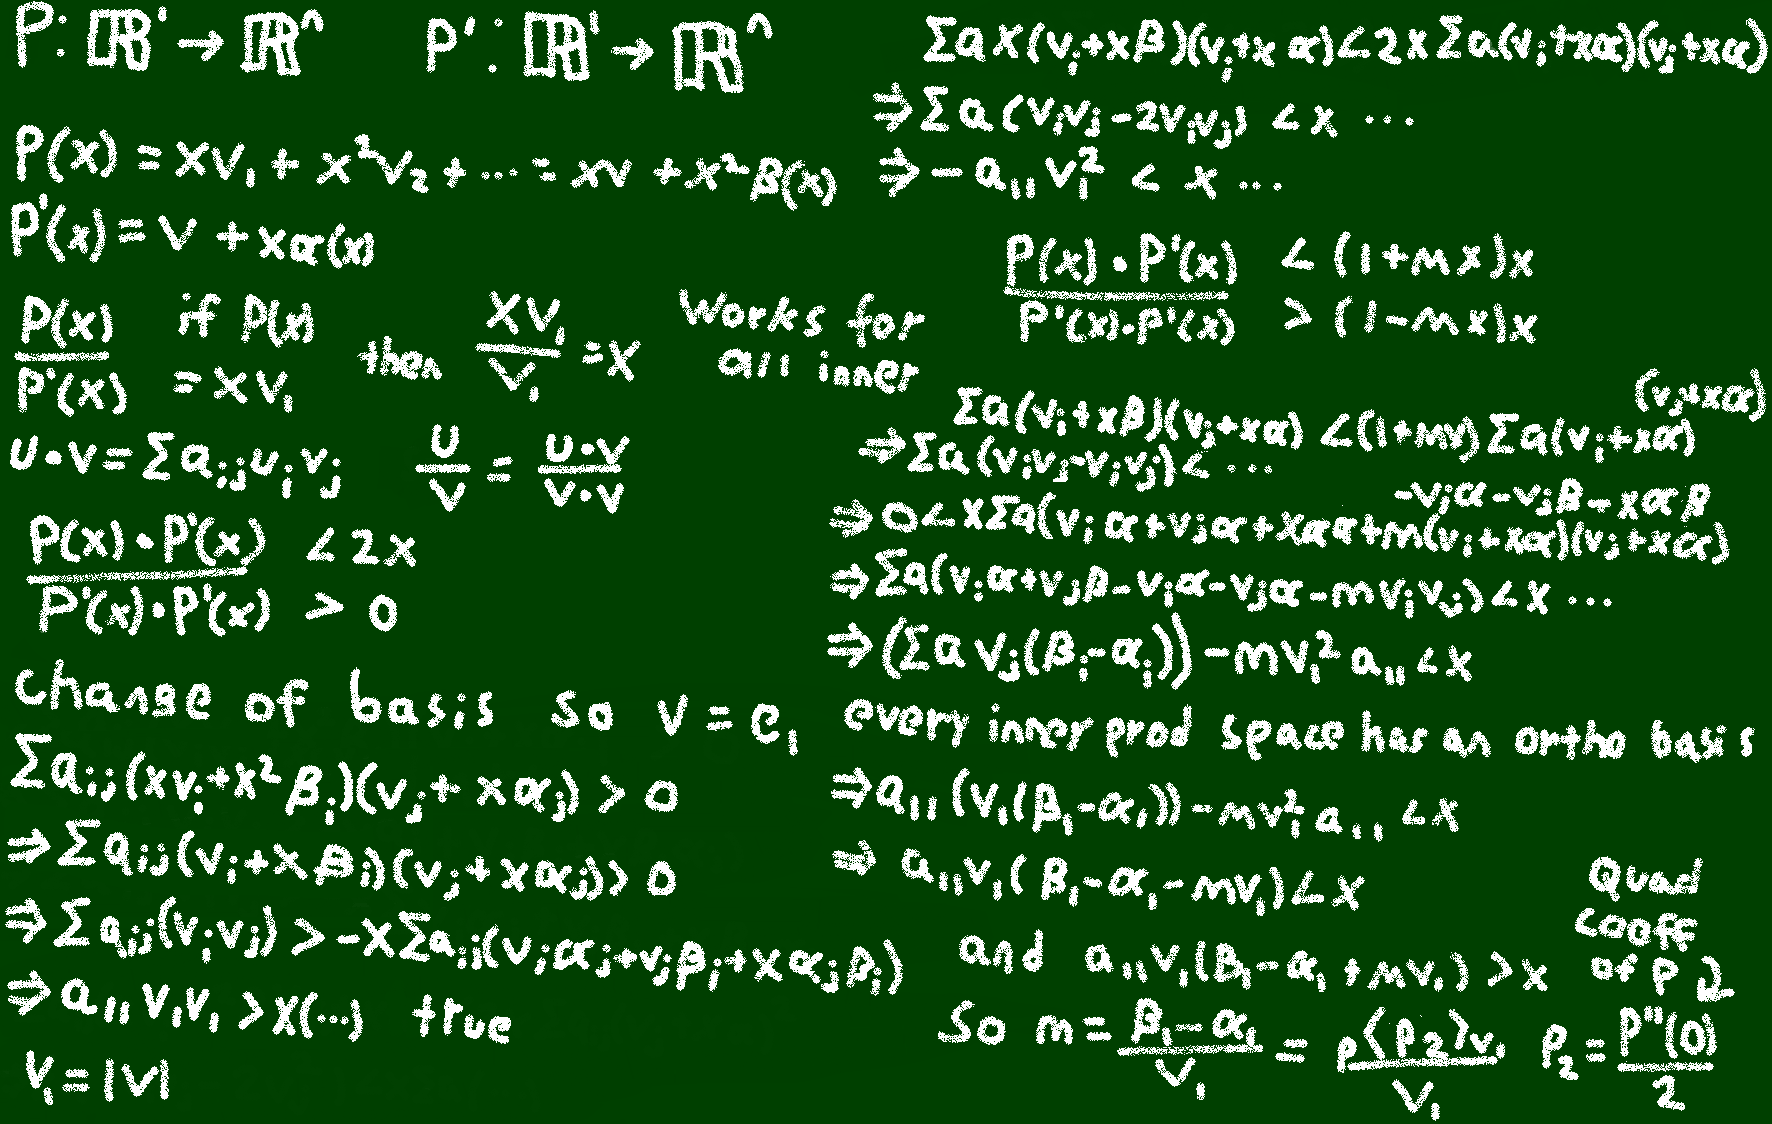 P: ℝ¹ → ℝⁿ    P': ℝ¹ → ℝⁿ
P(x) = xv₁ + x²v₂ + ... = xv + x²β(x)
P'(x) = v + xα(x)
P(x)/P'(x) if P(x) = xv₁ then xv₁/v₁ = x works for all inner
u•v = Σa_ij u_i v_j    u/v = u•v/v•v
P(x)•P'(x)/P'(x)•P'(x) < 2x
> 0
change of basis so v = e₁
Σa_ij(xv_i+x²β_i)(v_j+xα_j) > 0
⇒ Σa_ij(v_i+xβ_i)(v_j+xα_j) > 0
⇒ Σa_ij(v_iv_j) > -xΣa_ij(v_iα_j+v_jβ_i+xα_jβ_i)
⇒ a₁₁v₁v₁ > x(...) true
v₁ = |v|
Σax(v_i+xβ)(v_j+xα) < 2xΣa(v_i+xα)(v_j+xα)
⇒ Σa(v_iv_j-2v_iv_j) < x ...
⇒ -a₁₁v₁² < x ...
P(x)•P'(x)/P'(x)•P'(x) < (1+mx)x
> (1-mx)x
(v_j+xα)
Σa(v_i+xβ)(v_j+xα) < (1+mv)Σa(v_i+xα)
⇒ Σa(v_iv_j-v_iv_j) < ...
-v_jα-v_jβ-xαβ
⇒ 0 < xΣa(v_iα+v_jα+xαα+m(v_i+xα)(v_j+xα)
⇒ Σa(v_iα+v_jβ-v_iα-v_jα-mv_iv_j) < x ...
⇒ (Σa v_j(β_i-α_i))-mv₁²a₁₁ < x
every inner prod space has an ortho basis
⇒ a₁₁(v₁(β₁-α₁))-mv₁²a₁₁ < x
⇒ a₁₁v₁(β₁-α₁-mv₁) < x
and a₁₁v₁(β₁-α₁+mv₁) > x
Quad
coeff
of P
So m = β₁-α₁/v₁ = P⟨P₂⟩v₁/v₁    P₂ = P''(0)/2